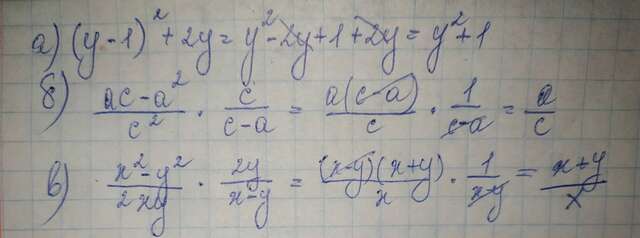 а) (y-1)² + 2y = y² - 2y + 1 + 2y = y² + 1
б) (ac - a²)/c² · c/(c-a) = a(c-a)/c · 1/(c-a) = a/c
в) (x² - y²)/(2xy) · 2y/(x-y) = (x-y)(x+y)/x · 1/(x-y) = (x+y)/x